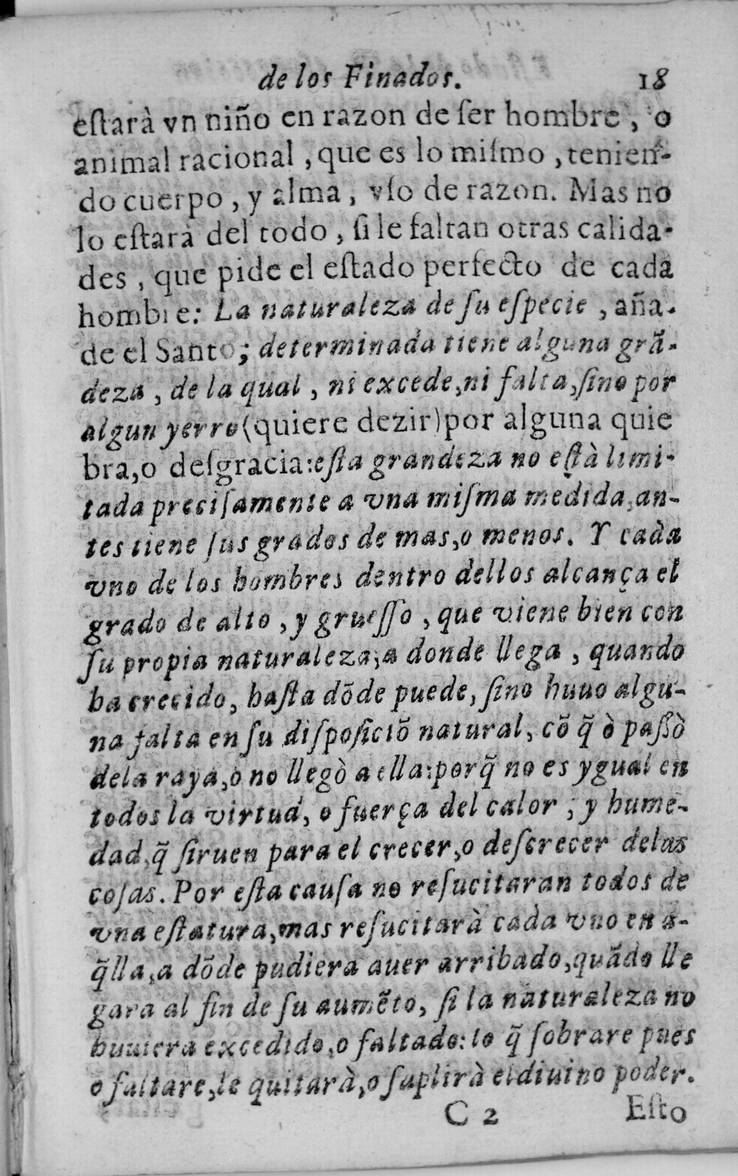 de los Finados. 18
eſtarà vn niño en razon de ſer hombre, o
animal racional, que es lo miſmo, tenien-
do cuerpo, y alma, vſo de razon. Mas no
lo eſtarà del todo, ſi le faltan otras calida-
des, que pide el eſtado perfecto de cada
hombre: La naturaleza de ſu eſpecie, aña-
de el Santo; determinada tiene alguna grã-
deza, de la qual, ni excede, ni falta, ſino por
algun yerro (quiere dezir) por alguna quie
bra, o deſgracia: eſta grandeza no eſtà limi-
tada preciſamente a vna miſma medida, an-
tes tiene ſus grados de mas, o menos. Y cada
vno de los hombres dentro dellos alcança el
grado de alto, y grueſſo, que viene bien con
ſu propia naturaleza; a donde llega, quando
ha crecido, haſta dõde puede, ſino huuo algu-
na falta en ſu diſpoſiciõ natural, cõ q̃ ò paſſò
dela raya, o no llegò a ella: porq̃ no es ygual en
todos la virtud, o fuerça del calor, y hume-
dad, q̃ ſiruen para el crecer, o deſcrecer delas
coſas. Por eſta cauſa no reſucitaran todos de
vna eſtatura, mas reſucitarà cada vno en a-
q̃lla, a dõde pudiera auer arribado, quãdo lle
gara al fin de ſu aumẽto, ſi la naturaleza no
huuiera excedido, o faltado: lo q̃ ſobrare pues
o faltare, le quitarà, o ſuplirà el diuino poder.
C 2 Eſto